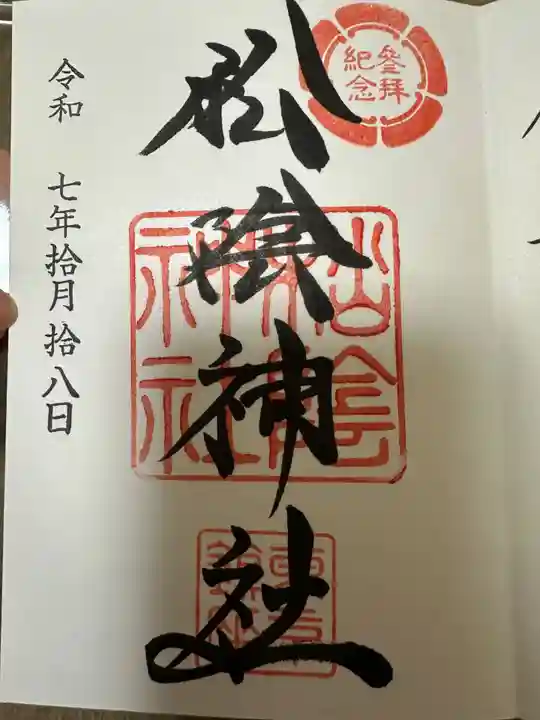 参拜
紀念
松陰神社
松陰
神社
令和 七年拾月拾八日